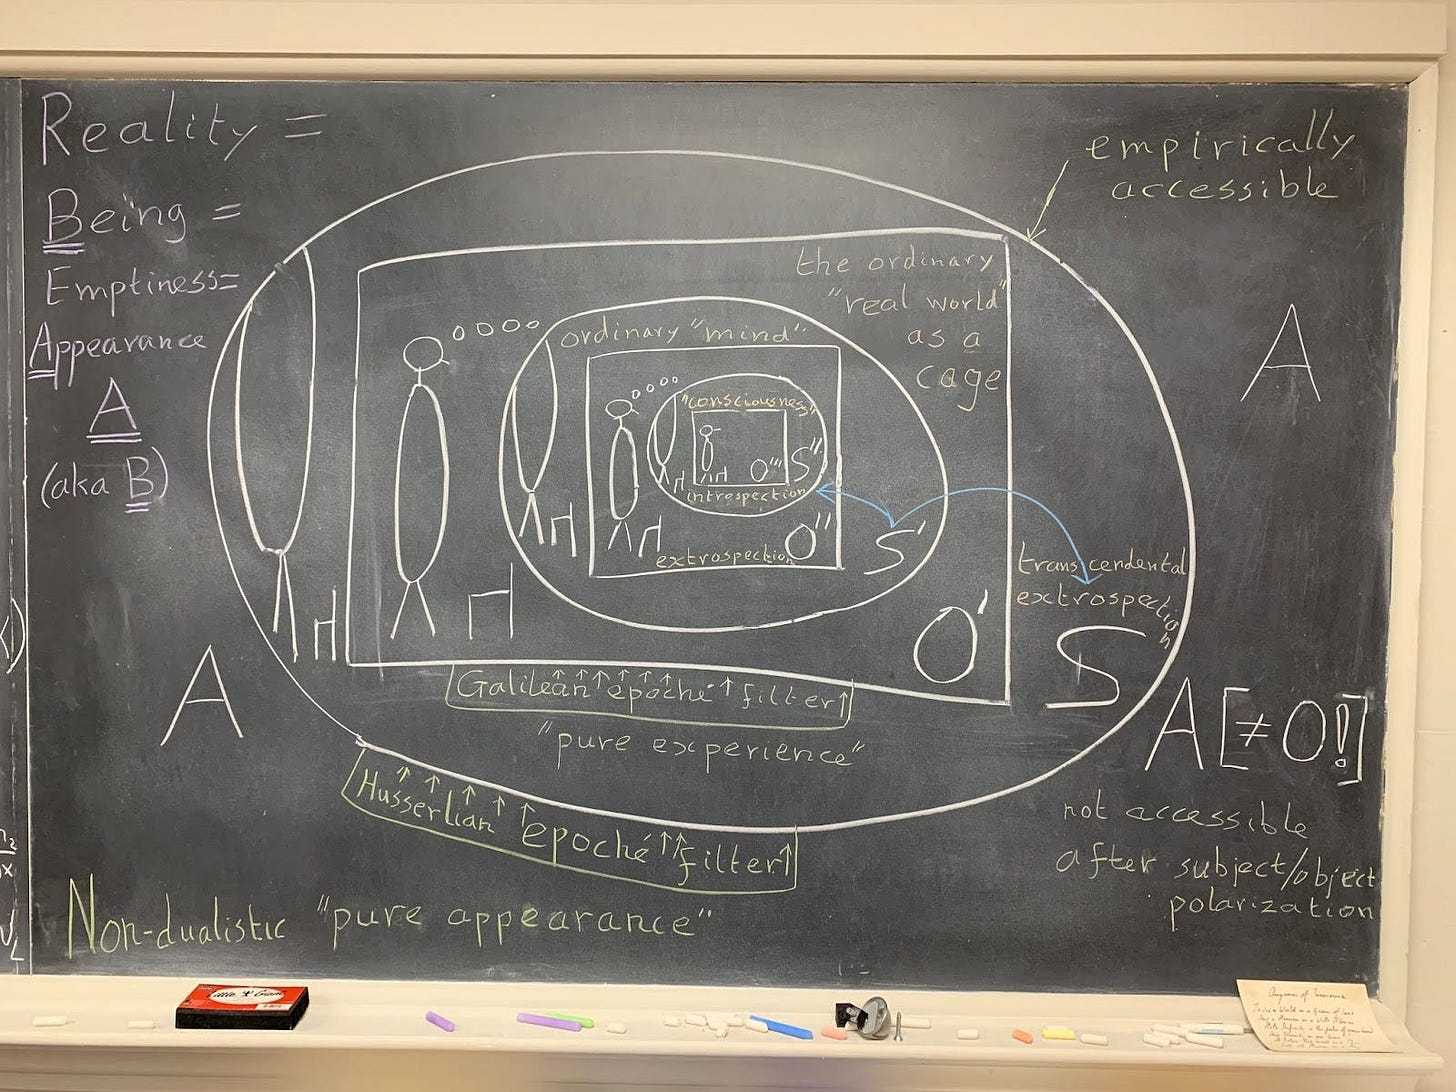 Reality =
Being =
Emptiness=
Appearance
A
(aka B)
empirically
accessible
the ordinary
"real world"
as a
cage
ordinary "mind"
"consciousness"
O'''
S''
introspection
O''
extrospection
S'
transcendental
extrospection
O'
S
A
A
A [≠ O!]
Galilean epoché filter
"pure experience"
Husserlian epoché filter
not accessible
after subject/object
polarization
Non-dualistic "pure appearance"
Little Giant